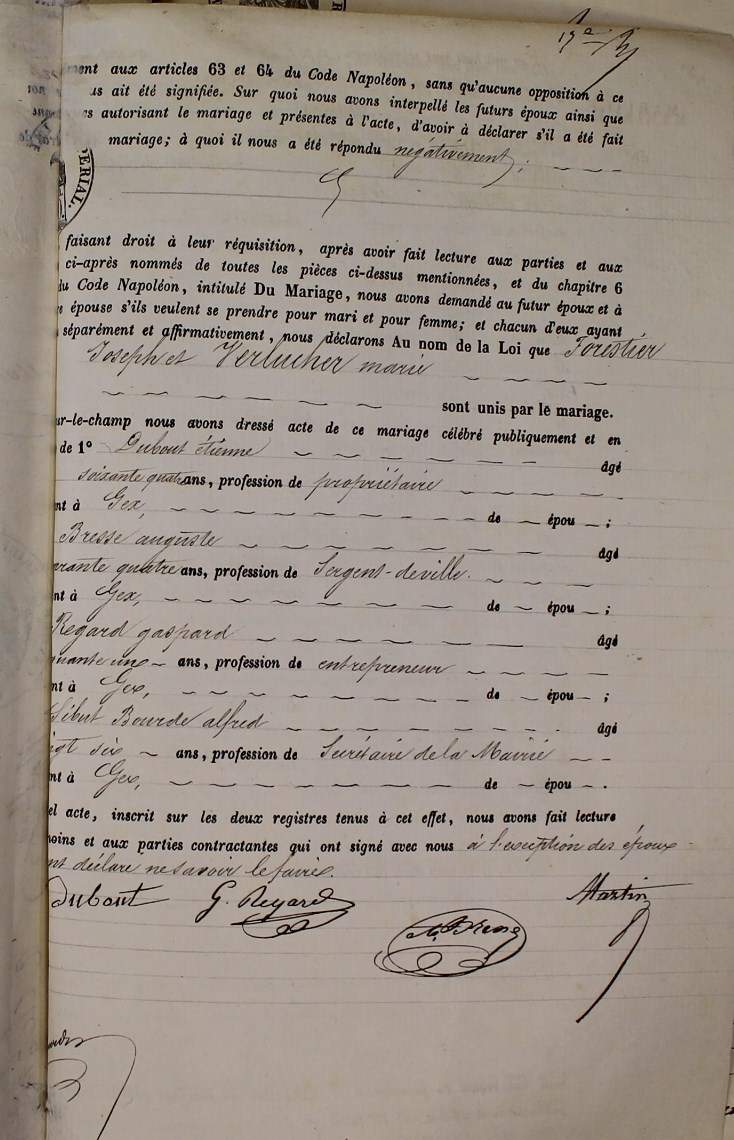 ment aux articles 63 et 64 du Code Napoléon, sans qu'aucune opposition à ce
us ait été signifiée. Sur quoi nous avons interpellé les futurs époux ainsi que
es autorisant le mariage et présentes à l'acte, d'avoir à déclarer s'il a été fait
mariage; à quoi il nous a été répondu négativement;
ERIAL.
faisant droit à leur réquisition, après avoir fait lecture aux parties et aux
ci-après nommés de toutes les pièces ci-dessus mentionnées, et du chapitre 6
du Code Napoléon, intitulé Du Mariage, nous avons demandé au futur époux et à
e épouse s'ils veulent se prendre pour mari et pour femme; et chacun d'eux ayant
séparément et affirmativement, nous déclarons Au nom de la Loi que Forestier
Joseph et Verlucher marie
sont unis par le mariage.
ur-le-champ nous avons dressé acte de ce mariage célébré publiquement et en
de 1º Dubout étienne âgé
soixante quatre ans, profession de propriétaire
nt à Gex, de — épou —;
Bresse auguste âgé
arante quatre ans, profession de Sergent-deville.
nt à Gex, de — épou —;
Regard gaspard âgé
quante un — ans, profession de entrepreneur
nt à Gex, de — épou —;
Bourde alfred âgé
ngt six — ans, profession de Secrétaire de la Mairie
nt à Gex, de — épou —.
el acte, inscrit sur les deux registres tenus à cet effet, nous avons fait lecture
moins et aux parties contractantes qui ont signé avec nous à l'exception des époux
nt déclaré ne savoir le faire.
Dubout G. Regard Martin
A. Bresse